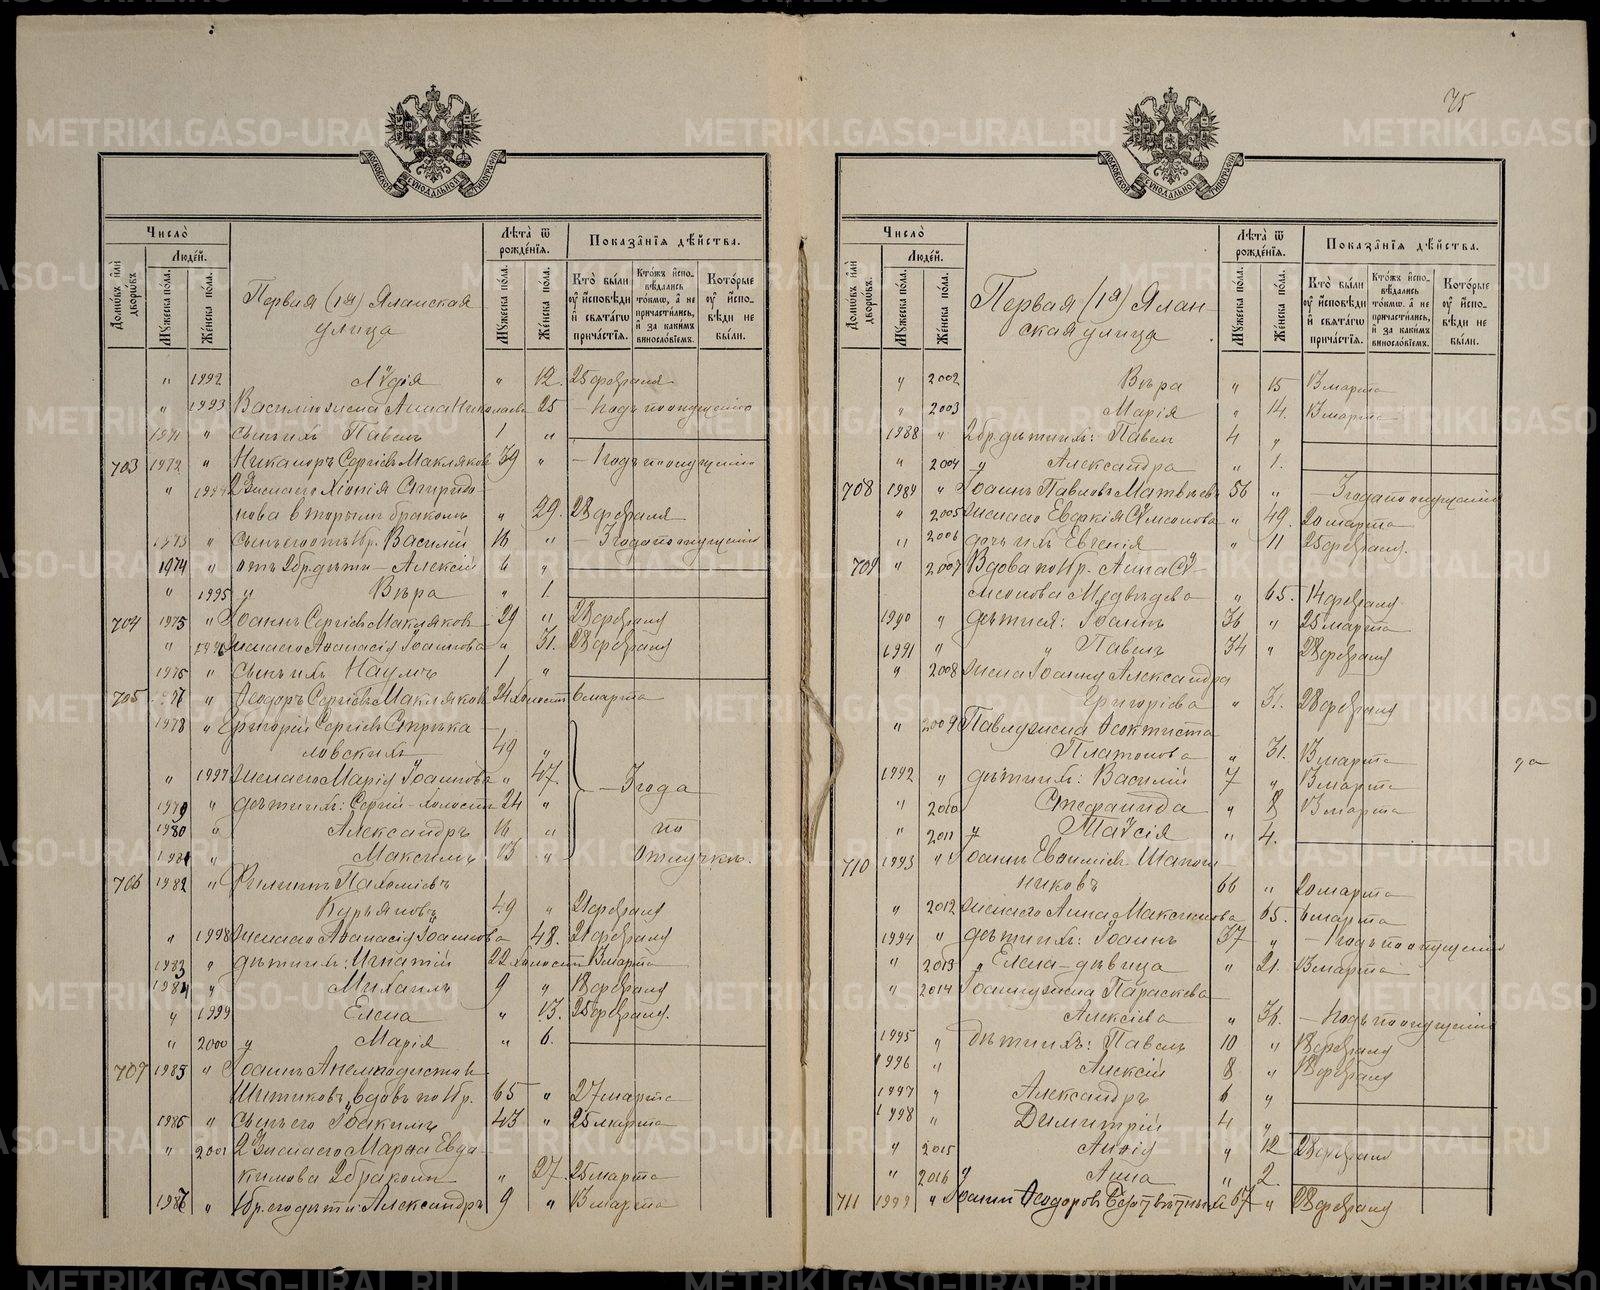 75
МОСКОВСКОЙ СѴНОДАЛЬНОЙ ТИПОГРАФІИ
Число̀
Людей.
Домѡвъ и҆лѝ дворѡвъ.
Мꙋжеска по́ла.
Же́нска по́ла.
Первая (1я) Яланская
улица
Лѣта̀ ѿ рожде́нїѧ.
Мꙋжеска по́ла.
Же́нска по́ла.
Показа̑нїѧ дѣ́йства.
Кто̀ бы́ли оу҆ и҆сповѣди и҆ свѧта́гѡ прича́стїѧ.
Кто́жъ и҆спо­вѣдались то́кмѡ, а҆ не причасти́лись, и҆ за каки́мъ винослові́емъ.
Кото́рые оу҆ и҆спо­вѣди не бы́ли.
" 1992 Лѵдія " 12. 25 февраля
" 1993 Василію жена Анна Николаева 25 — 1 годъ по опущенію
1971 " сынъ ихъ Павелъ 1 "
703 1972 " Никаноръ Сергіевъ Макляковъ 39 " — 1 годъ по опущенію
" 1994 2 жена его Хіонія Спиридо-
нова вторымъ бракомъ " 29. 28 февраля
1973 " сынъ его отъ 1 бр. Василій 16 " — 3 года по опущенію
1974 " отъ 2 бр. дѣти — Алексій 6 "
" 1995 " Вѣра " 1.
704 1975 " Іоаннъ Сергіевъ Макляковъ 29 " 28 февраля
" 1996 жена его Аѳанасія Іоаннова " 31. 28 февраля
1976 " сынъ ихъ Наумъ 1 "
705 1977 " Ѳеодоръ Сергіевъ Макляковъ 24 холостъ 6 марта
1978 " Григорій Сергіевъ Стрѣка-
ловскихъ 49 "
" 1997 жена его Марія Іоаннова " 47. — 3 года
1979 " дѣти ихъ: Сергій — холостъ 24 "
1980 " Александръ 16 " по
1981 " Максимъ 13 " отлучкѣ.
706 1982 " Филиппъ Пахоміевъ
Курьяновъ 49 " 21 февраля
" 1998 жена его Аѳанасія Іоаннова " 48. 21 февраля
1983 " дѣти ихъ: Игнатій 22 холостъ 13 марта
1984 " Михаилъ 9 " 18 февраля
" 1999 Елена " 13. 25 февраля.
" 2000 " Марія " 6.
707 1985 " Іоаннъ Анемподистовъ
Шитиковъ, вдовъ по 1 бр. 65 " 27 марта
1986 " сынъ его Іоакимъ 43 " 25 марта
" 2001 2 жена его Марѳа Евдо-
кимова 2 бракомъ " 27. 25 марта
1987 " 1 бр. его дѣти: Александръ 9 " 13 марта
МОСКОВСКОЙ СѴНОДАЛЬНОЙ ТИПОГРАФІИ
Число̀
Людей.
Домѡвъ и҆лѝ дворѡвъ.
Мꙋжеска по́ла.
Же́нска по́ла.
Первая (1я) Ялан-
ская улица
Лѣта̀ ѿ рожде́нїѧ.
Мꙋжеска по́ла.
Же́нска по́ла.
Показа̑нїѧ дѣ́йства.
Кто̀ бы́ли оу҆ и҆сповѣди и҆ свѧта́гѡ прича́стїѧ.
Кто́жъ и҆спо­вѣдались то́кмѡ, а҆ не причасти́лись, и҆ за каки́мъ винослові́емъ.
Кото́рые оу҆ и҆спо­вѣди не бы́ли.
" 2002 Вѣра " 15 13 марта
" 2003 Марія " 14. 13 марта
1988 " 2 бр. дѣти ихъ: Павелъ 4 "
" 2004 " Александра " 1.
708 1989 " Іоаннъ Павловъ Матвѣевъ 56 " — 3 года по опущенію
" 2005 жена его Евдокія Сѵмеонова " 49. 20 марта
" 2006 дочь ихъ Евгенія " 11 25 февраля.
709 " 2007 Вдова по 1 бр. Анна Сѵ-
меонова Медвѣдева " 65. 14 февраля
1990 " дѣти ея: Іоаннъ 36 " 25 марта
1991 " " Павелъ 34 " 28 февраля
" 2008 жена Іоанну Александра
Григоріева " 31. 28 февраля
" 2009 Павлу жена Ѳеоктиста
Платонова " 31. 13 марта
1992 " дѣти ихъ: Василій 7 " 13 марта
" 2010 Стефанида " 8 13 марта
" 2011 " Таѵсія " 4.
710 1993 " Іоаннъ Евѳиміевъ Шапош-
никовъ 66 " 20 марта
" 2012 жена его Анна Максимова 65. 6 марта
1994 " дѣти ихъ: Іоаннъ 37 " — 1 годъ по опущенію
" 2013 " Елена — дѣвица " 21. 13 марта
" 2014 Іоанну жена Параскева
Алексіева " 36. — 1 годъ по опущенію
1995 " дѣти ихъ: Павелъ 10 " 18 февраля
1996 " Алексій 8 " 18 февраля
1997 " Александръ 6 "
1998 " Димитрій 4 "
" 2015 " 12 28 февраля
" 2016 " Анна " 2.
711 1999 " Іоаннъ Ѳеодоровъ 67 " 28 февраля
METRIKI.GASO-URAL.RU